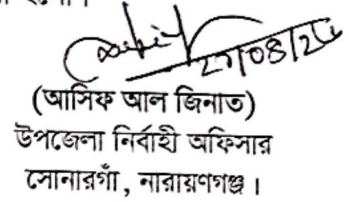 (আসিফ আল জিনাত)
উপজেলা নির্বাহী অফিসার
সোনারগাঁ, নারায়ণগঞ্জ।